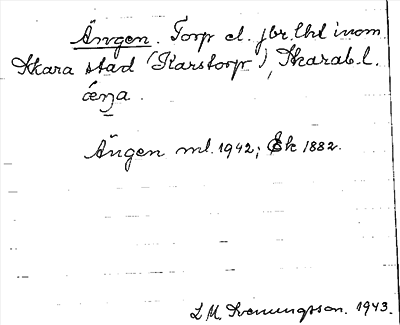 Ängen. Torp el. jbr.lht inom
Skara stad (Karstorp), Skarab.l.
æŋa.
Ängen ml. 1942; Ek 1882.
L M. Svenungsson. 1943.